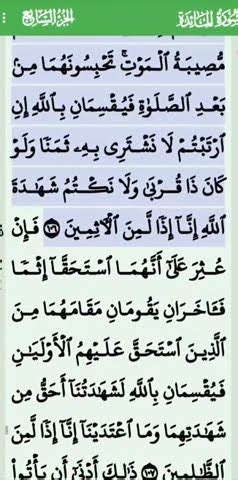 سُورَةُ المَائدَة الجُزءُ السَّابِعُ
مُّصِيبَةُ ٱلْمَوْتِۚ تَحْبِسُونَهُمَا مِنۢ
بَعْدِ ٱلصَّلَوٰةِ فَيُقْسِمَانِ بِٱللَّهِ إِنِ
ٱرْتَبْتُمْ لَا نَشْتَرِى بِهِۦ ثَمَنًا وَلَوْ
كَانَ ذَا قُرْبَىٰ وَلَا نَكْتُمُ شَهَٰدَةَ
ٱللَّهِ إِنَّآ إِذًا لَّمِنَ ٱلْءَاثِمِينَ ١٠٦ فَإِنْ
عُثِرَ عَلَىٰٓ أَنَّهُمَا ٱسْتَحَقَّآ إِثْمًا
فَـَٔاخَرَانِ يَقُومَانِ مَقَامَهُمَا مِنَ
ٱلَّذِينَ ٱسْتَحَقَّ عَلَيْهِمُ ٱلْأَوْلَيَٰنِ
فَيُقْسِمَانِ بِٱللَّهِ لَشَهَٰدَتُنَآ أَحَقُّ مِن
شَهَٰدَتِهِمَا وَمَا ٱعْتَدَيْنَآ إِنَّآ إِذًا لَّمِنَ
ٱلظَّٰلِمِينَ ١٠٧ ذَٰلِكَ أَدْنَىٰٓ أَن يَأْتُوا۟